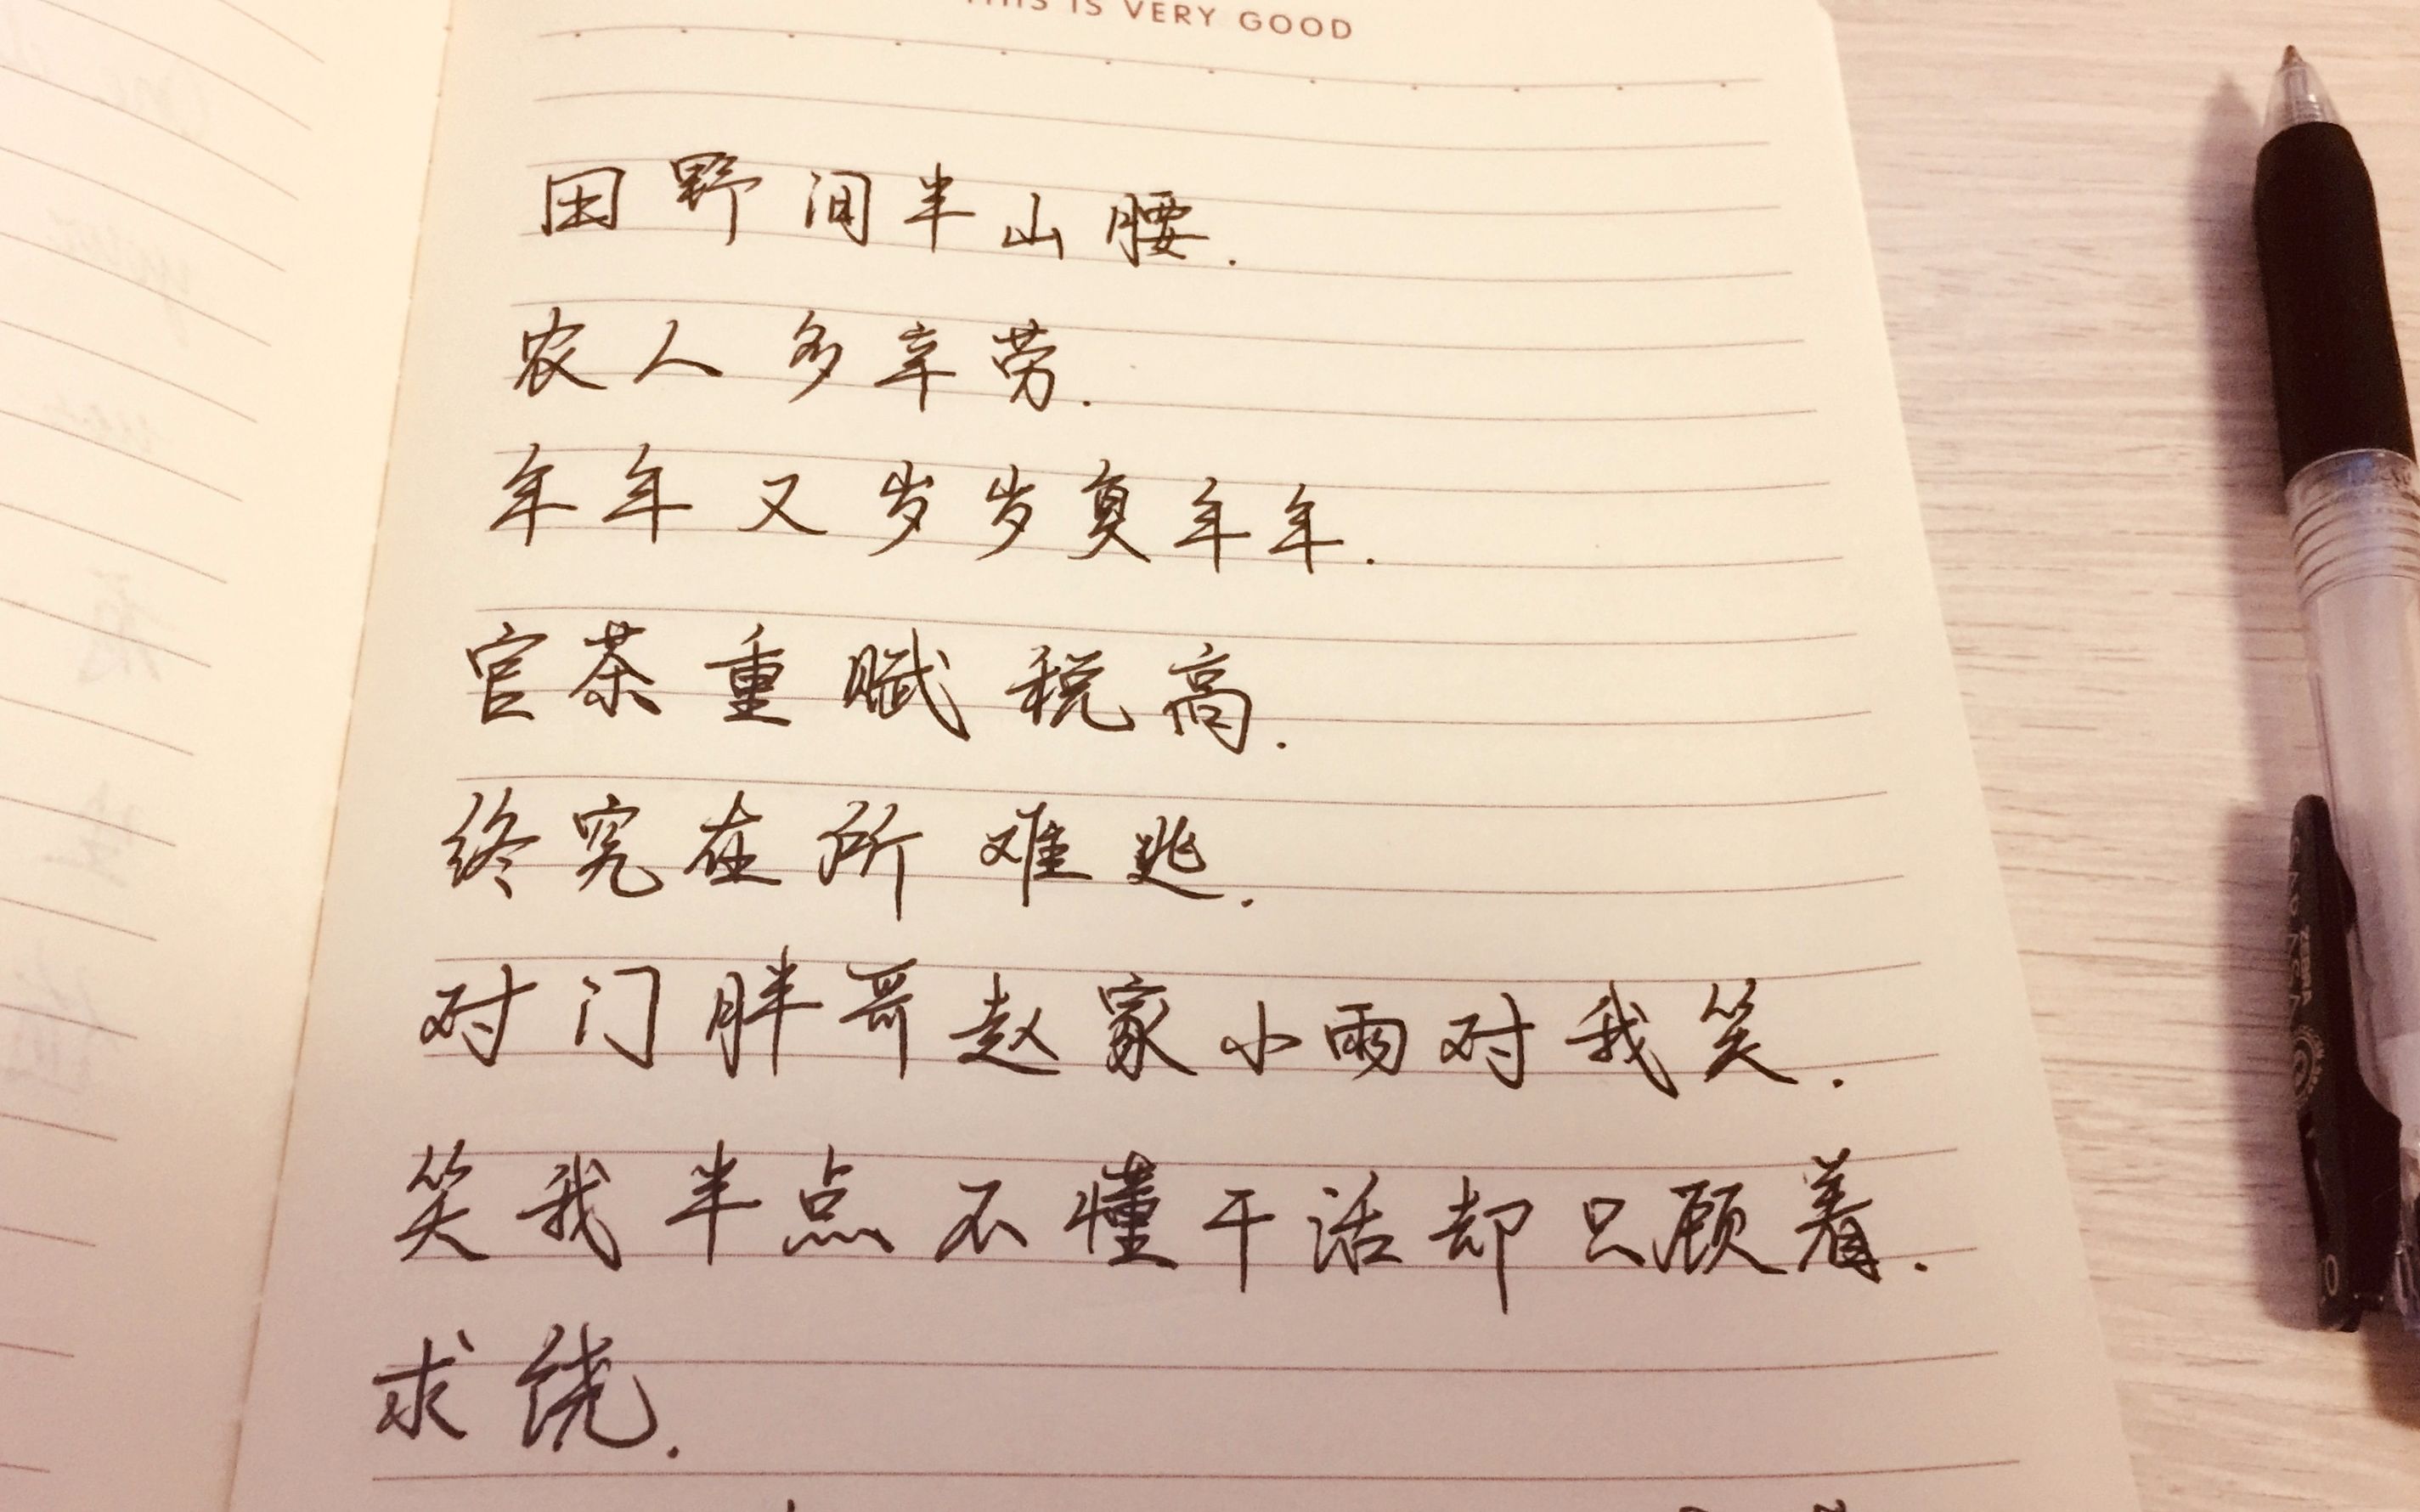 THIS IS VERY GOOD
田野间半山腰.
农人多辛劳.
年年又岁岁复年年.
官茶重赋税高.
终究在所难逃.
对门胖哥赵家小雨对我笑.
笑我半点不懂干活却只顾着.
求饶.